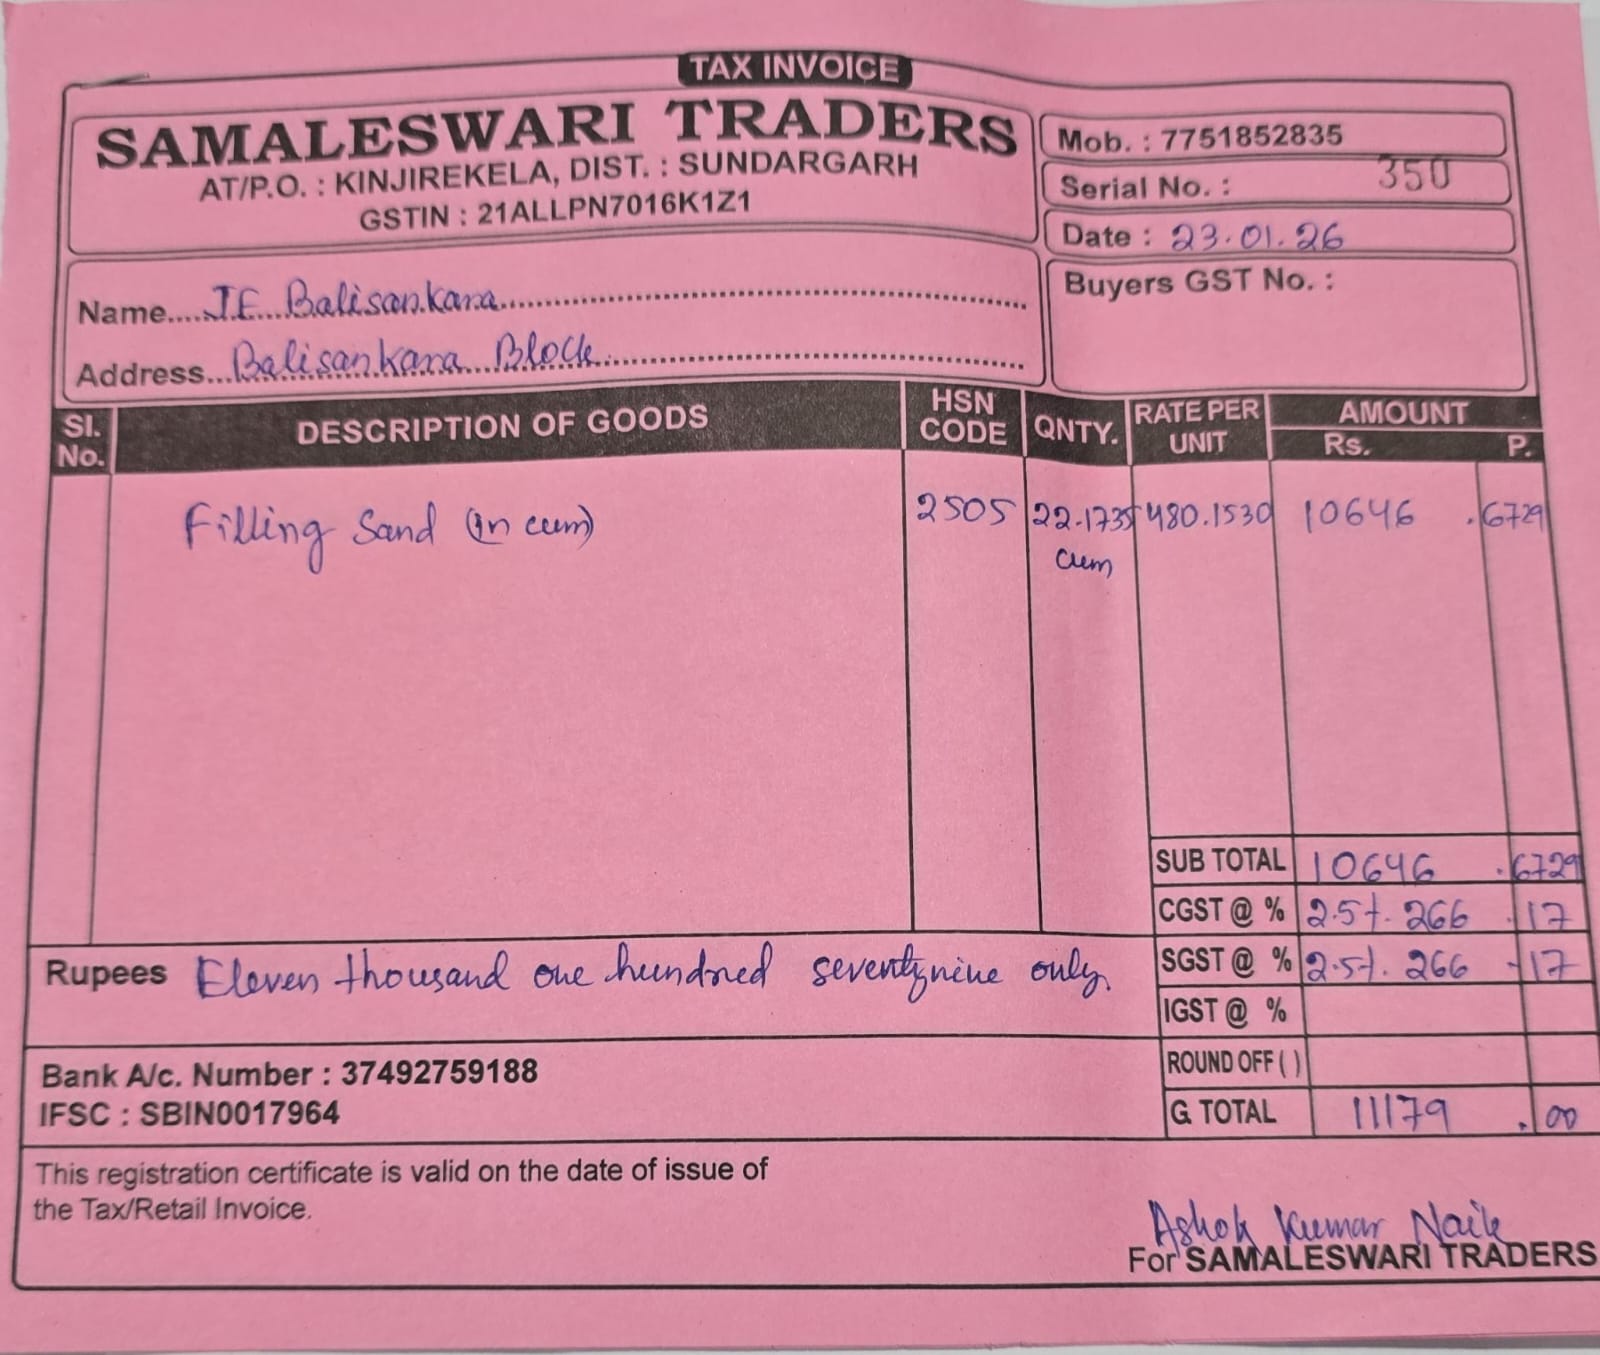 TAX INVOICE
SAMALESWARI TRADERS
AT/P.O. : KINJIREKELA, DIST. : SUNDARGARH
GSTIN : 21ALLPN7016K1Z1
Mob. : 7751852835
Serial No. : 350
Date : 23.01.26
Name....JE Balisankara
Address...Balisankara Block
Buyers GST No. :
Sl. No. DESCRIPTION OF GOODS HSN CODE QNTY. RATE PER UNIT AMOUNT Rs. P.
Filling Sand (in cum) 2505 22.1735 cum 480.1530 10646 .6729
SUB TOTAL 10646 .6729
CGST @ % 2.5%. 266 .17
SGST @ % 2.5%. 266 .17
IGST @ %
ROUND OFF ( )
G. TOTAL 11179 .00
Rupees Eleven thousand one hundred seventynine only.
Bank A/c. Number : 37492759188
IFSC : SBIN0017964
This registration certificate is valid on the date of issue of
the Tax/Retail Invoice.
Ashok Kumar Naik
For SAMALESWARI TRADERS